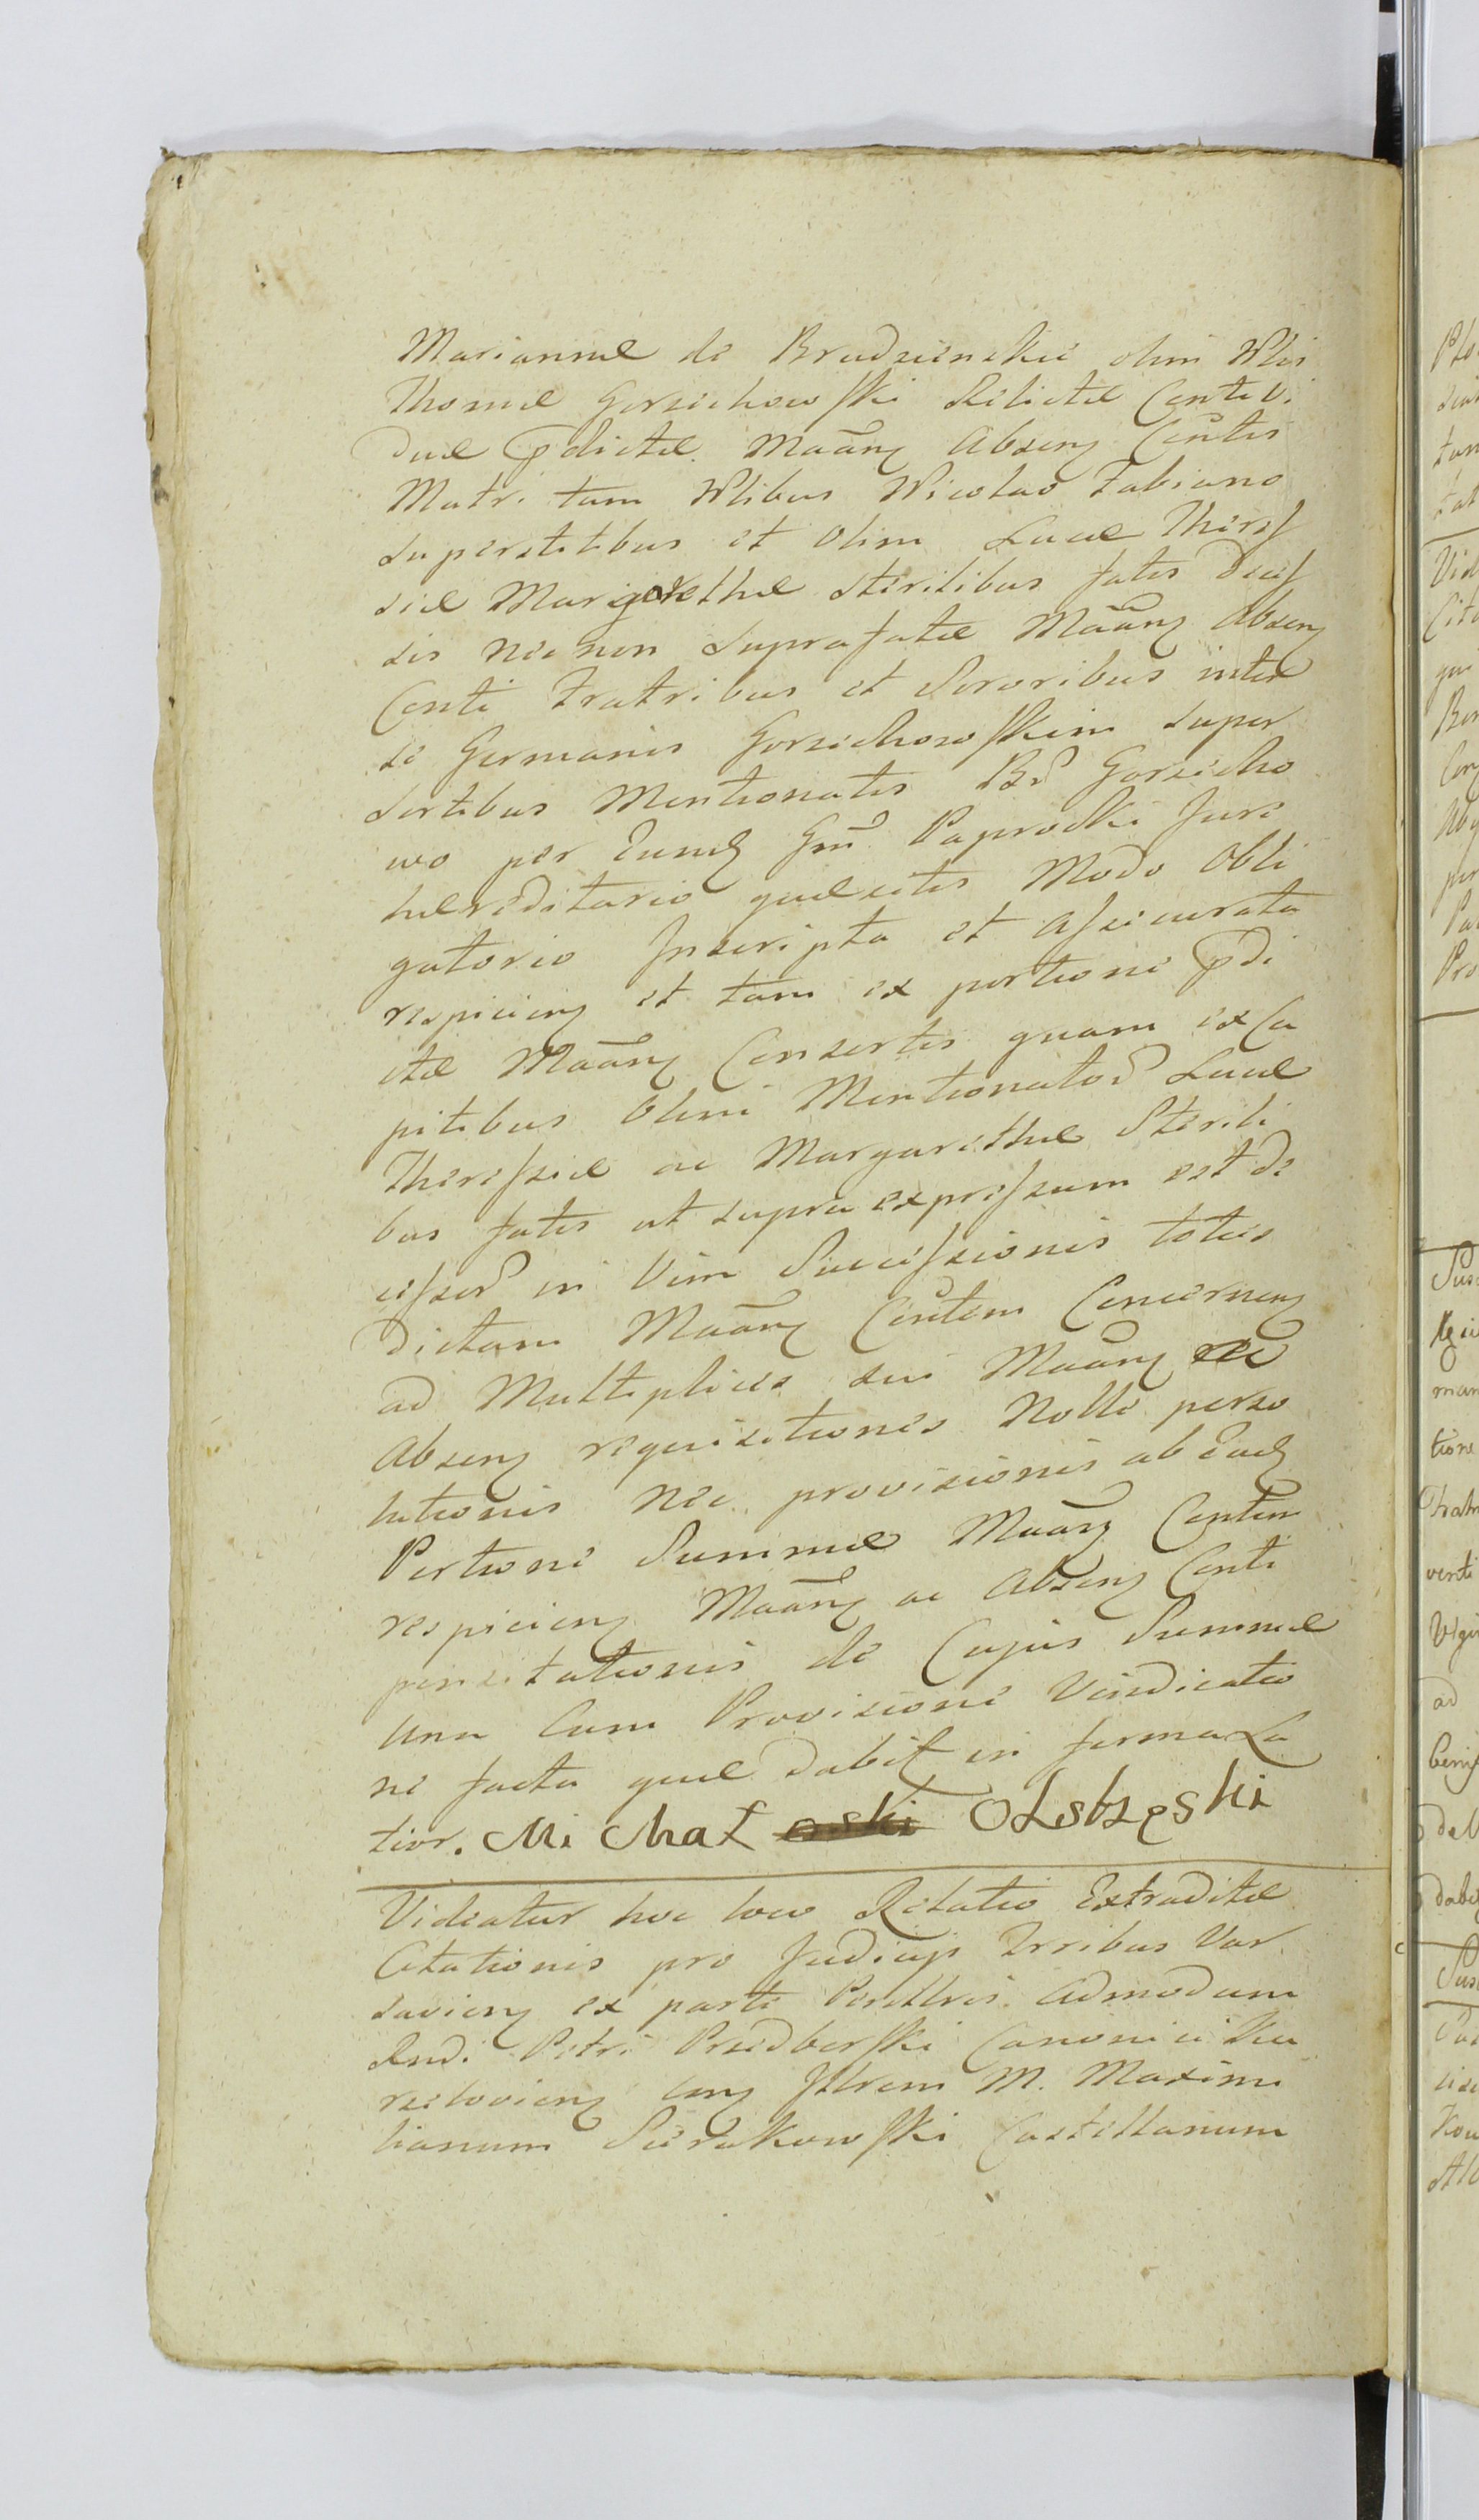 Mariannæ de Brudzienskie olim Wlis
Thomæ Gorzichowski Relictæ Consti Vi
duæ pdictæ Maãnz Absenz Centis
Matri tam Wlibus Nicolao Fabiano
superstitibus et olim Lucæ Theres
siæ Margarethæ sterilibus fatis Deces
sis nec non suprafatæ Maãnz Absenz
Conti Fratribus et Sororibus inter
se Germanis Gorzichowskim super
sortibus Mentionatis Bd Gorzicho
wo per Eund Gm Paprocki Jure
hæreditario quæsitis Modo Obli
gatorio Inscripta et Assecurata
respicienz et tam ex portione pdi
ctæ Maãnz Consortis quam ex Ca
pitibus Olim Mentionator Lucæ
Theressiæ ac Margarethæ Sterili
bus fatis ut supra expressum est De
cessor in Vim Successionis toties
Dictam Maãnz Contem Concernenz
ad Multiplices sui Maãnz ac
Absenz requisitiones Nolle perso
lutionis nec provisionis ab Ead
Portione Summæ Maãnz Contem
respicienz Maãnz ac Absenz Conti
pensitationis de Cujus Summæ
una Cum Provisione Vindicatio
ne facta quæ Dabit in forma La
tior. Michał oski Olstzęski
Videatur hoc loco Relatio Extraditæ
Citationis pro Judicijs Trribus Var
savienz ex parte Perillris Admodum
Rndi Petri Przedborski Canonici Ku
rzelovienz Conz Illrem M. Maximi
lianum Sierakowski Castellanum